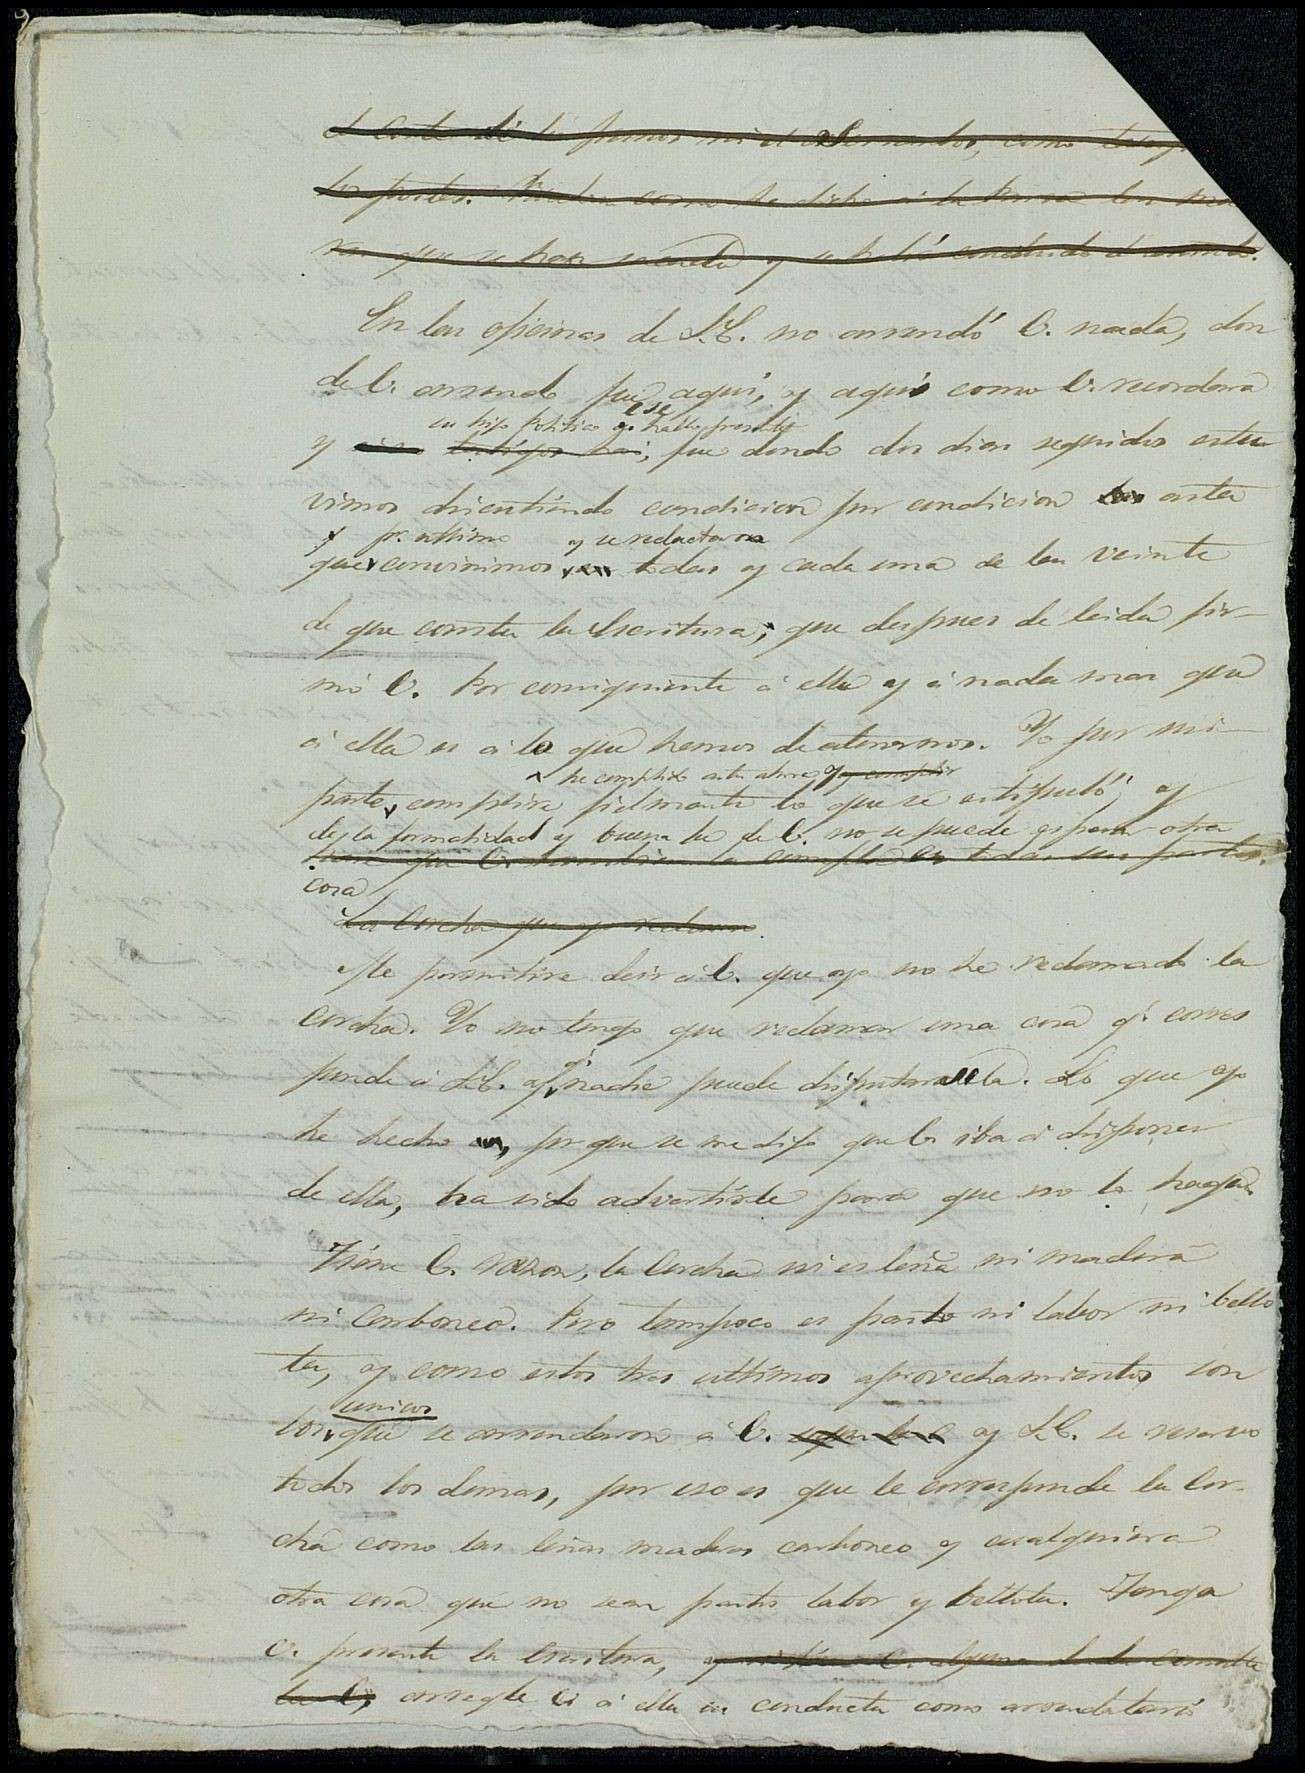 los partes. como he dicho á la
que se han y
En las oficinas de S.E. no arrendó V. nada, don
de V. arrendó fue aquí, y aquí como V. recordara
su hijo politico q. ese hallo presente
y testigos, fue donde dos dias seguidos estu
vimos discutiendo condicion por condicion asta
y pr. ultimo y se redactaron
que convinimos todas y cada una de las veinte
de que consta la Escritura, que despues de leida fir-
mó V. Por consiguiente á ella y á nada mas que
á ella es á lo que hemos de atenernos. Yo por mi
he cumplido asta ahora y cumplir
parte, cumplire fielmente lo que se estipuló, y
de la formalidad y buena fe de V. no se puede esperar otra
que V. tambien cumpla en todas sus partes.
cosa
La Corcha que yo reclamo
Me permitire decir á V. que yo no he reclamado la
corcha. Yo no tengo que reclamar una cosa q. corres
ponde á S.E. y q. nadie puede disputarsela. Lo que yo
he hecho, porque se me dijo que V. iba á disponer
de ella, ha sido advertirle para que no lo haga.
Tiene V. razon, la Corcha ni es leña ni madera
ni Carboneo. Pero tampoco es pasto ni labor ni bello
ta, y como estos tres ultimos aprovechamientos son
unicos
los que se arrendaron á V. y S.E. se reservo
todos los demas, por eso es que le corresponde la Cor-
cha como las leñas maderas carboneo y cualquiera
otra cosa que no sean pastos labor y bellota. Tenga
V. presente la Escritura,
arregle á ella su conducta como arrendatario